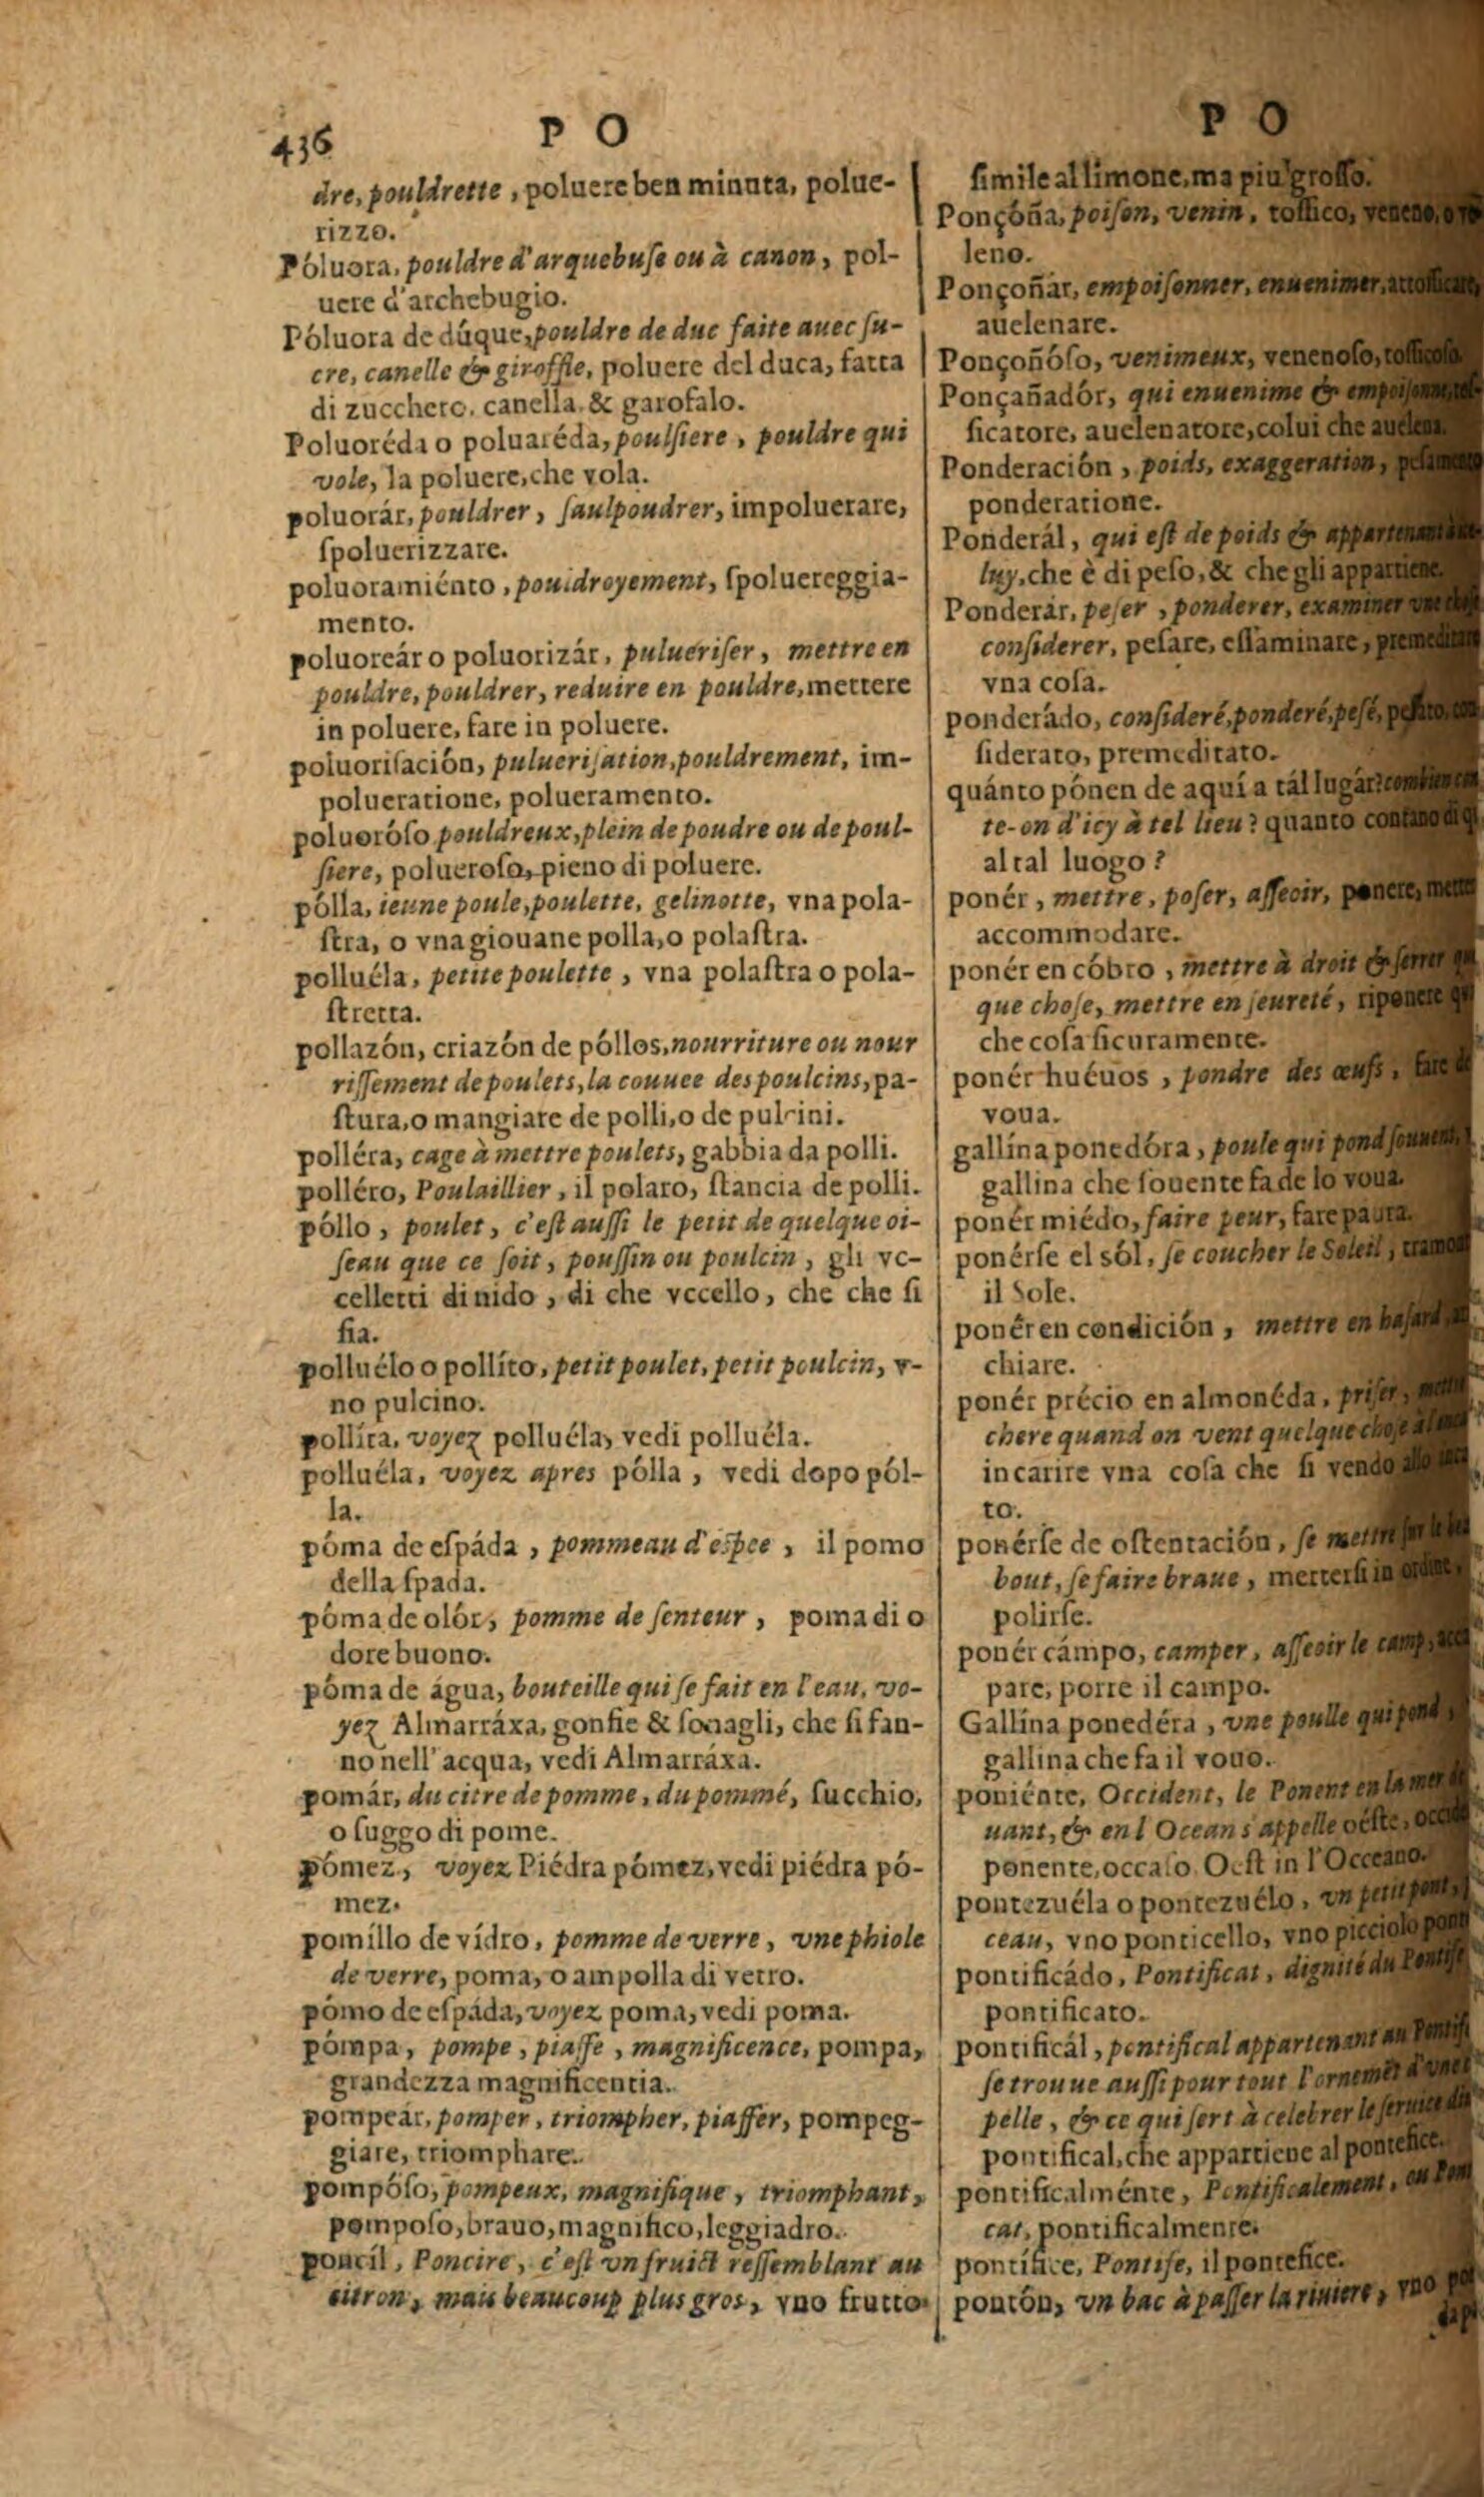 436
P O
dre, pouldrette, poluere ben minuta, polue-
rizzo.
Póluora, pouldre d'arquebuſe ou à canon, pol-
uere d'archebugio.
Póluora de dúque, pouldre de duc faite auec ſu-
cre, canelle & giroffle, poluere del duca, fatta
di zucchero, canella, & garofalo.
Poluoréda o poluaréda, poulſiere, pouldre qui
vole, la poluere, che vola.
poluorár, pouldrer, ſaulpoudrer, impoluerare,
ſpoluerizzare.
poluoramiénto, pouldroyement, ſpoluereggia-
mento.
poluoreár o poluorizár, pulueriſer, mettre en
pouldre, pouldrer, reduire en pouldre, mettere
in poluere, fare in poluere.
poluoriſación, pulueriſation, pouldrement, im-
polueratione, polueramento.
poluoróſo pouldreux, plein de poudre ou de poul-
ſiere, polueroſo, pieno di poluere.
pólla, ieune poule, poulette, gelinotte, vna pola-
ſtra, o vna giouane polla, o polaſtra.
polluéla, petite poulette, vna polaſtra o pola-
ſtretta.
pollazón, criazón de póllos, nourriture ou nour
riſſement de poulets, la couuee des poulcins, pa-
ſtura, o mangiare de polli, o de pulcini.
polléra, cage à mettre poulets, gabbia da polli.
polléro, Poulaillier, il polaro, ſtancia de polli.
póllo, poulet, c'eſt auſſi le petit de quelque oi-
ſeau que ce ſoit, pouſſin ou poulcin, gli vc-
celletti di nido, di che vccello, che che ſi
ſia.
polluélo o pollíto, petit poulet, petit poulcin, v-
no pulcino.
pollíta, voyez polluéla, vedi polluéla.
polluéla, voyez apres pólla, vedi dopo pól-
la.
póma de eſpáda, pommeau d'eſpee, il pomo
della ſpada.
póma de olór, pomme de ſenteur, poma di o
dore buono.
póma de água, bouteille qui ſe fait en l'eau, vo-
yez Almarráxa, gonfie & ſonagli, che ſi fan-
no nell' acqua, vedi Almarráxa.
pomár, du citre de pomme, du pommé, ſucchio,
o ſuggo di pome.
pómez, voyez Piédra pómez, vedi piédra pó-
mez.
pomíllo de vídro, pomme de verre, vne phiole
de verre, poma, o ampolla di vetro.
pómo de eſpáda, voyez poma, vedi poma.
pómpa, pompe, piaffe, magnificence, pompa,
grandezza magnificentia.
pompeár, pomper, triompher, piaffer, pompeg-
giare, triomphare.
pompóſo, pompeux, magnifique, triomphant,
pompoſo, brauo, magnifico, leggiadro.
poncíl, Poncire, c'eſt vn fruict reſſemblant au
citron, mais beaucoup plus gros, vno frutto
P O
ſimile al limone, ma piu groſſo.
Ponçóña, poiſon, venin, toſſico, veneno, o ve
leno.
Ponçoñár, empoiſonner, enuenimer, attoſſicare,
auelenare.
Ponçoñóſo, venimeux, venenoſo, toſſicoſo.
Ponçañadór, qui enuenime & empoiſonne, toſ-
ſicatore, auelenatore, colui che auelena.
Ponderación, poids, exaggeration, peſamento
ponderatione.
Ponderál, qui eſt de poids & appartenant à
luy, che è di peſo, & che gli appartiene.
Ponderár, peſer, ponderer, examiner vne choſe
conſiderer, peſare, eſſaminare, premeditare
vna coſa.
ponderádo, conſideré, ponderé, peſé, peſato, con
ſiderato, premeditato.
quánto pónen de aquí a tál lugár? combien
te-on d'icy à tel lieu? quanto contano di qi
al tal luogo?
ponér, mettre, poſer, aſſeoir, ponere, mette
accommodare.
ponér en cóbro, mettre à droit & ſerrer
que choſe, mettre en ſeureté, riponere
che coſa ſicuramente.
ponér huéuos, pondre des œufs, fare
voua.
gallína ponedóra, poule qui pond ſouuent,
gallina che ſouente fa de lo voua.
ponér miédo, faire peur, fare paura.
ponérſe el sól, ſe coucher le Soleil, tramon
il Sole.
ponér en condición, mettre en haſard,
chiare.
ponér précio en almonéda, priſer, mettre
chere quand on vent quelque choſe
incarire vna coſa che ſi vende allo
to.
ponérſe de oſtentación, ſe mettre ſur le
bout, ſe faire braue, metterſi in ordine,
polirſe.
ponér cámpo, camper, aſſeoir le camp,
pare, porre il campo.
Gallína ponedéra, vne poulle qui pond,
gallina che fa il vouo.
poniénte, Occident, le Ponent en la mer
uant, & en l'Ocean s'appelle oéſte,
ponente, occaſo Oeſt in l'Occeano.
pontezuéla o pontezuélo, vn petit pont,
ceau, vno ponticello, vno picciolo
pontificádo, Pontificat, dignité du Pontife
pontificato.
pontificál, pontifical appartenant au
ſe trouue auſſi pour tout l'ornemēt
pelle, & ce qui ſert à celebrer le ſeruice
pontifical, che appartiene al pontefice.
pontificalménte, Pontificalement,
cat, pontificalmente.
pontífice, Pontife, il pontefice.
pontón, vn bac à paſſer la riuiere, vno